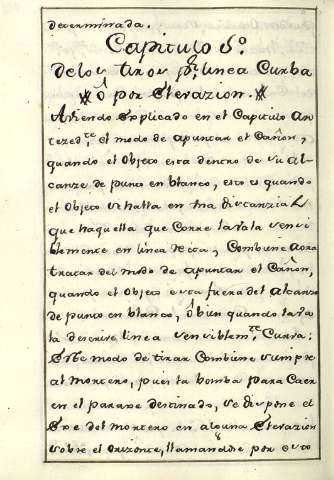 determinada.
Capitulo 6º.
De los tiros pr. linea Curba
ô por Elevazion.
Aviendo Explicado en el Capitulo an-
tezedte. el modo de apuntar el Cañon,
quando el objeto esta dentro de su al-
canze de punto en blanco, esto es quando
el objeto se halla en una distanzia
que haquella que corre la vala sensi
blemente en linea recta, Combiene aora
tratar del modo de apuntar el Cañon,
quando el objeto esta fuera del alcanze
de punto en blanco, ô bien quando la va
la descrive linea sensiblemte. Curva;
Este modo de tirar Combiene siempre
al mortero, pues la bomba para Caer
en el paraxe destinado, se dispone el
Exe del mortero en alguna Elevazion
sobre el orizonte, llamandose por esto